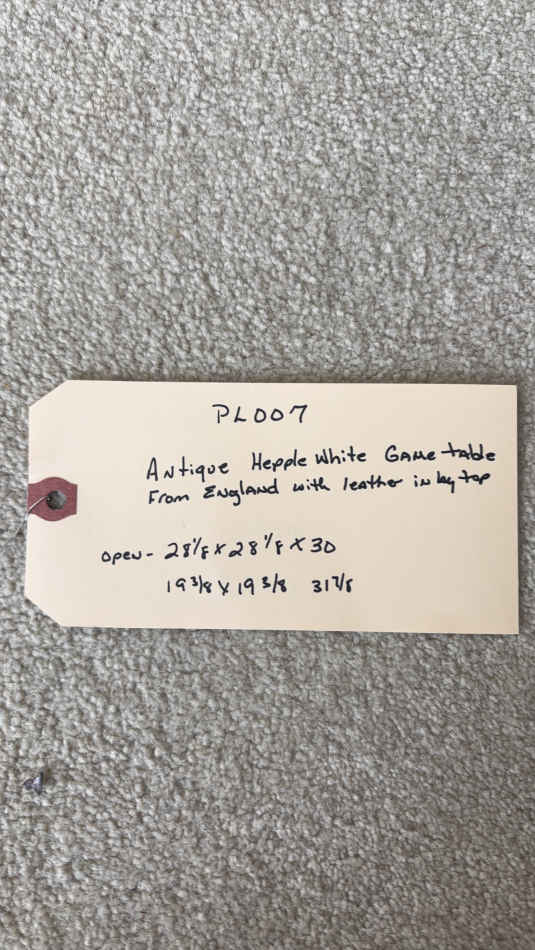 PL007
Antique Hepple White Game table
From England with leather in lay top
open - 28 1/8 x 28 1/8 x 30
19 3/8 x 19 3/8 31 7/8